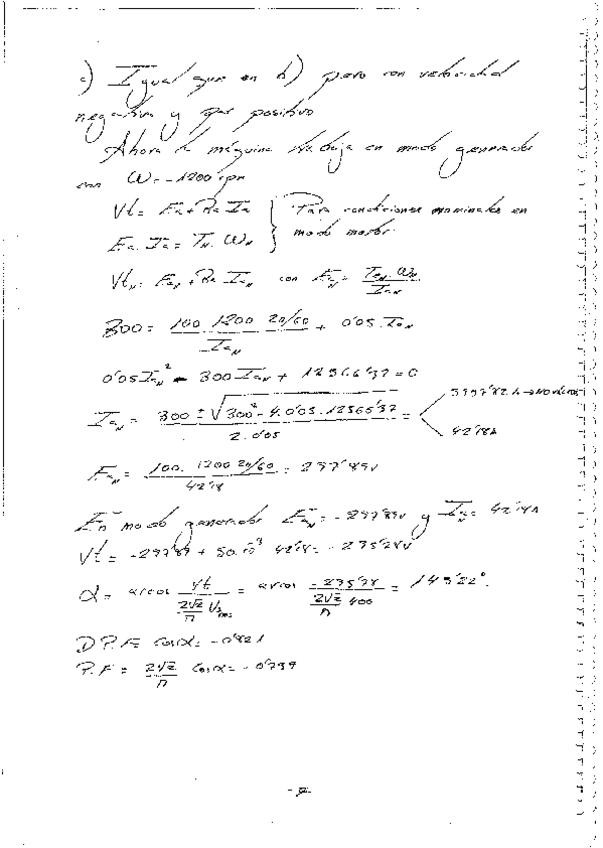 c) Igual que en b) pero con velocidad
negativa y par positivo
Ahora la máquina trabaja en modo generador
con W = -1200 rpm
Vt = Ea + Ra Ia } Para condiciones nominales en
Ea · Ia = TN · WN } modo motor.
VtN = EaN + Ra · IaN con EaN = TeN · WN / IaN
300 = 100 · 1200 · 2π/60 / IaN + 0'05 · IaN
0'05 IaN² - 300 IaN + 12566'37 = 0
IaN = 300 ± √300² - 4 · 0'05 · 12566'37 / 2 · 0'05 =
42'18A
EaN = 100 · 1200 2π/60 / 42'18 = 297'89V
En modo generador EaN = -297'89V y IaN = 42'18A
Vt = -297'89 + 50 · 10⁻³ 42'18 = -295'78V
α = arcos Vt / 2√2/π Us rms = arcos -295'78 / 2√2/π 400 = 145'22°.
DPF = cosα = -0'821
P.F = 2√2/π cosα = -0'739